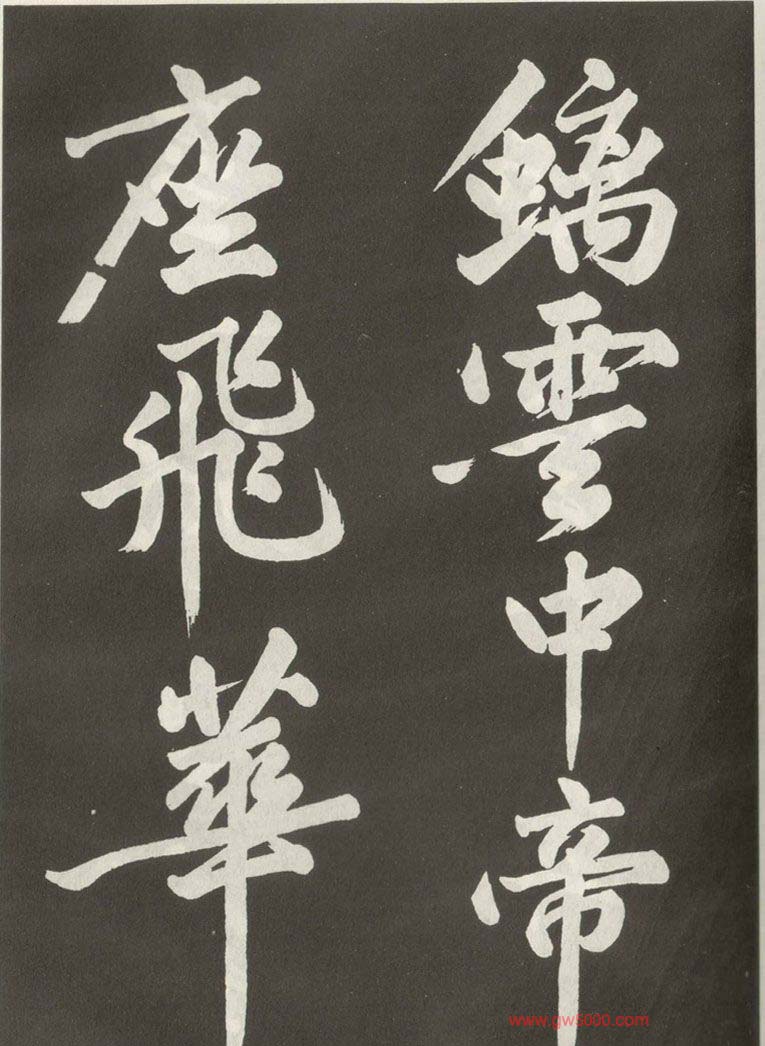 螭雲中帝
座飛華
www.gw5000.com